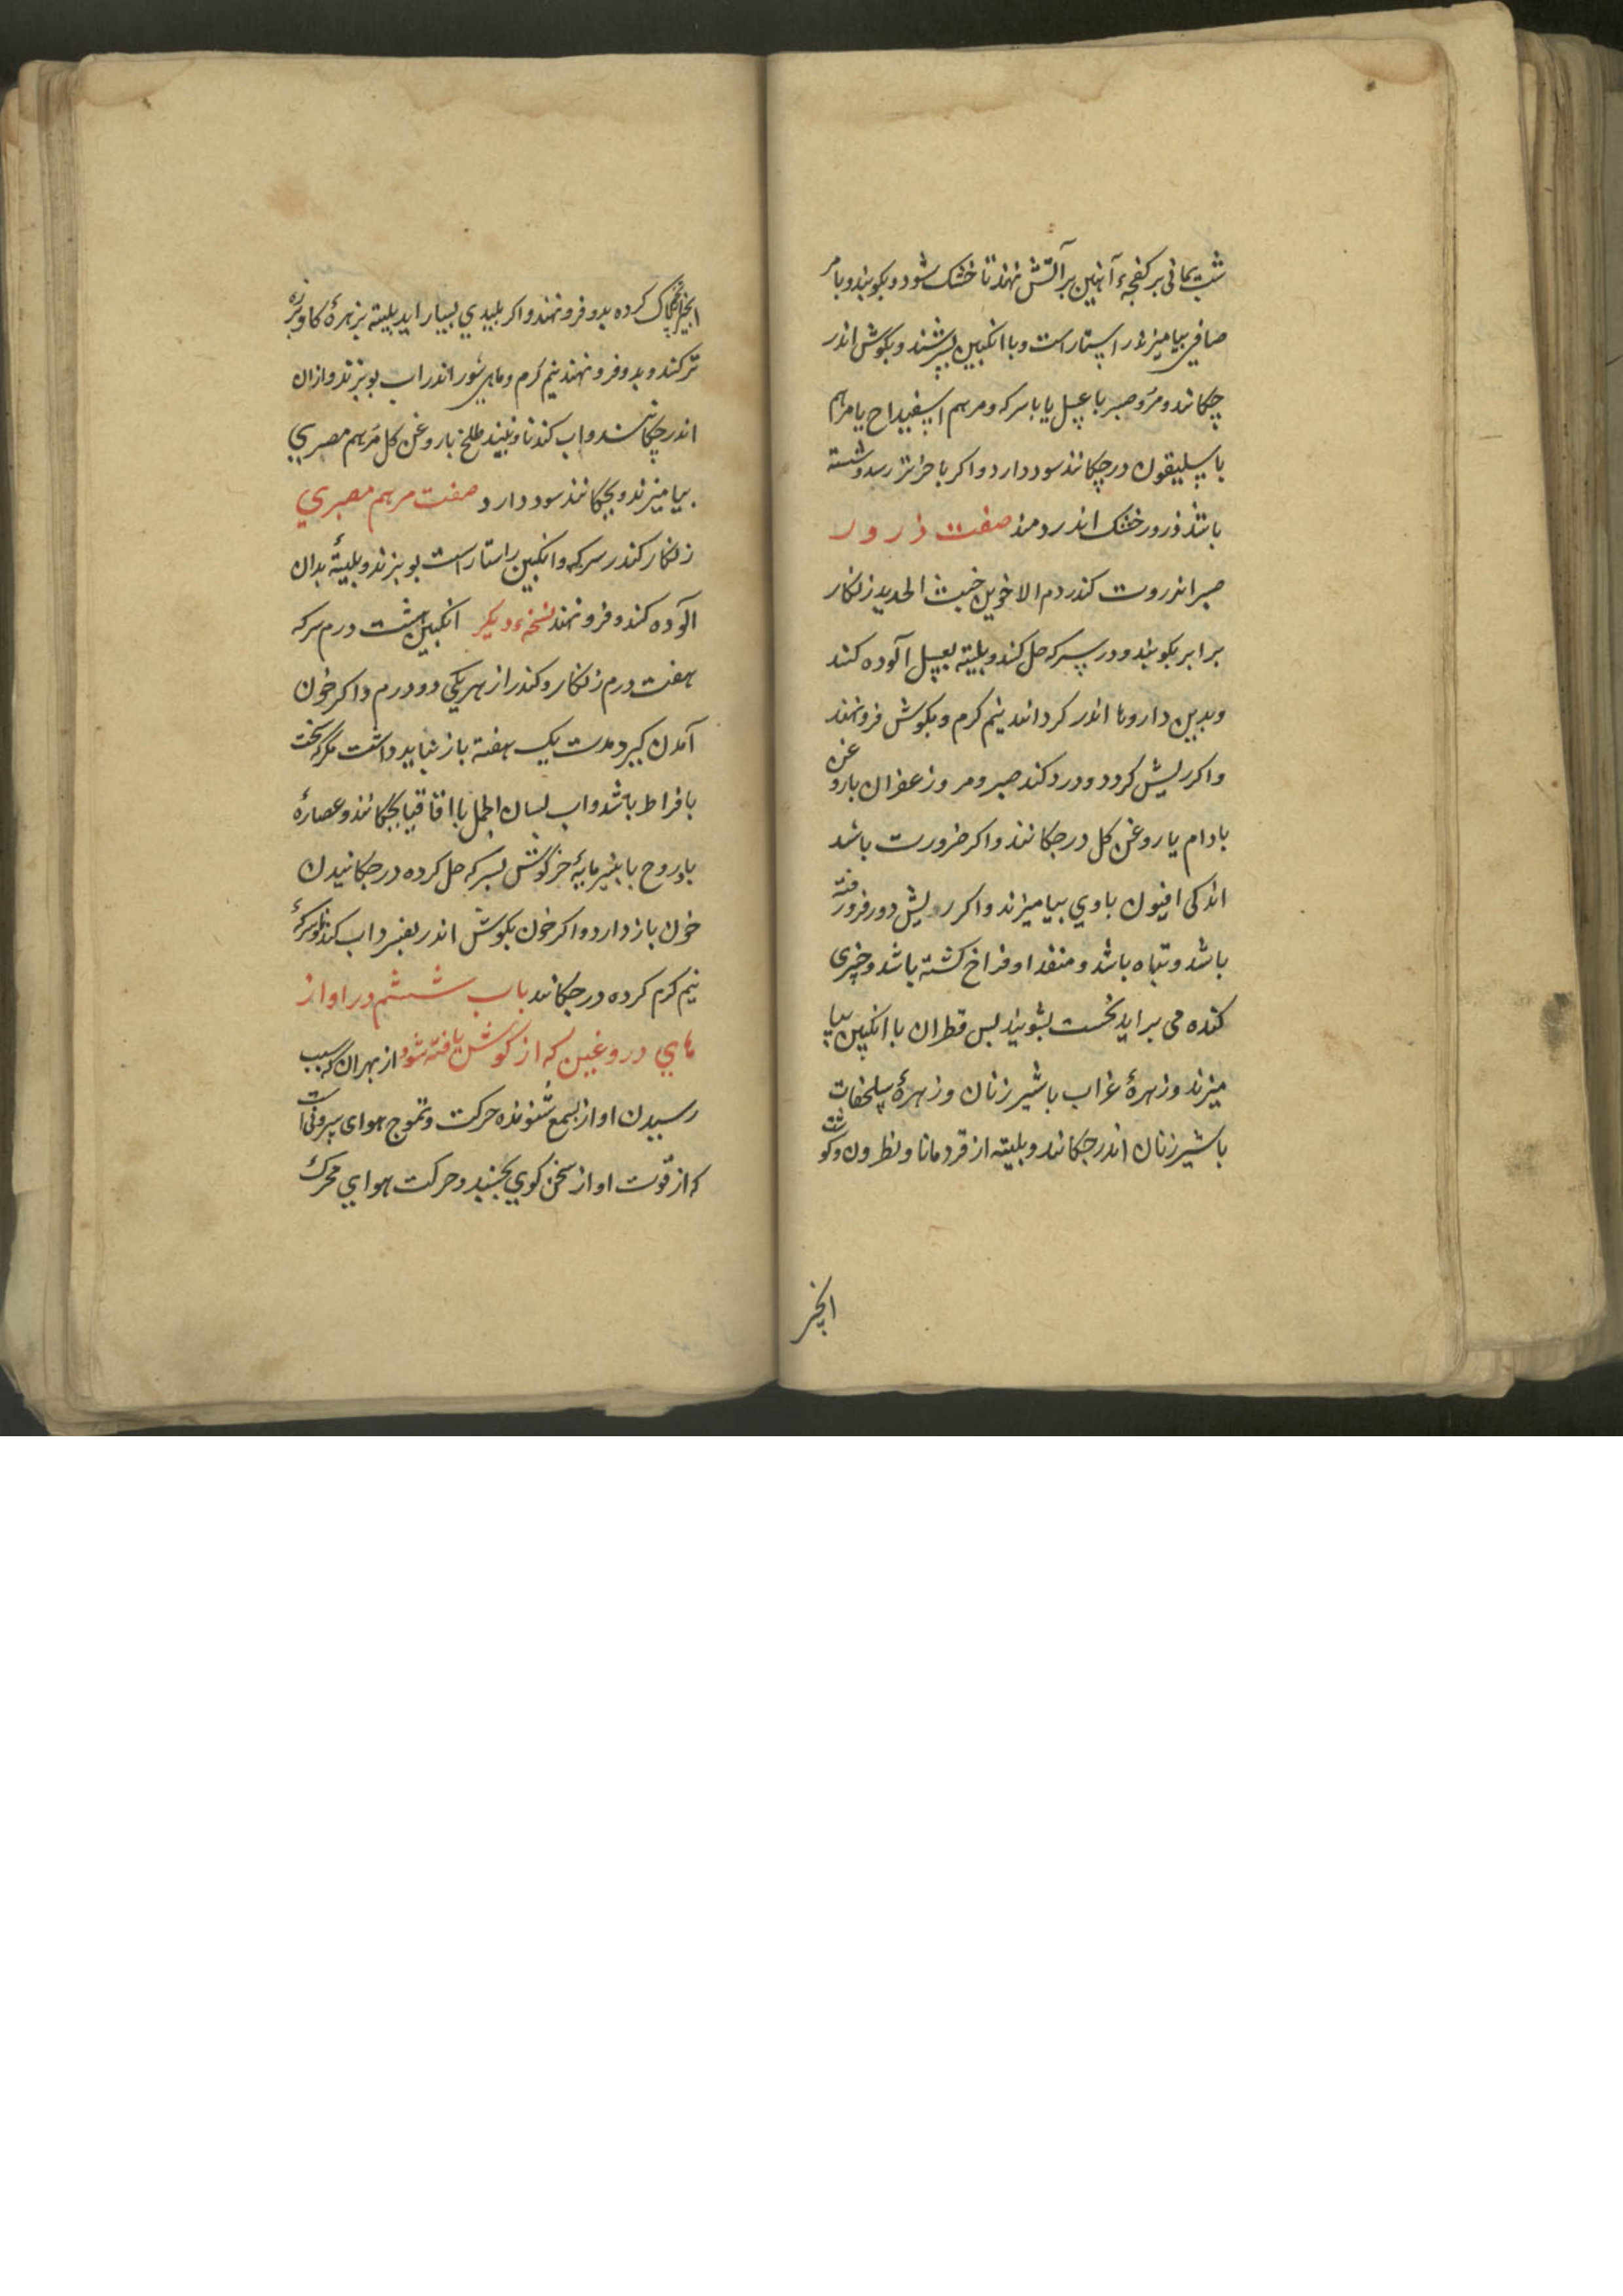 شب یمانی بر کفجهء آهنین بر آتش نهند تا خشک شود و بکوبند و با مر
صافی بیامیزند راستاراست و با انکبین بسرشند و بکوش اندر
چکانند و مر و صبر با عسل یا با سرکه و مرهم اسفیداج یا مرهم
باسلیقون در چکانند سود دارد و اکر باخر رسد و شسته
باشد ذرور خشک اندر دمند صفت ذرور
صبر انزروت کندر دم الاخوین خبث الحدید زنکار
برابر بکوبند و در سرکه حل کند و بلیته بعسل آلوده کند
و بدین داروها اندر کرداند نیم کرم و بکوش فرو نهند
واکر ریش کردد و درد کند صبر و مر و زعفران با روغن
بادام یا روغن کل در جکانند واکر ضرورت باشد
اندکی افیون با وی بیامیزند واکر ریش دور فرو رفته
باشد و تباه باشد و منفذ او فراخ کشته باشد و چیزی
کنده می براید نخست بشویند بس قطران با انکبین بیا
میزند و زهرهٔ غراب با شیر زنان و زهرهٔ سلحفات
با شیر زنان اندر جکانند و بلیته از قردمانا و نطرون و کوشت
انجیر
انجیر پاک کرده بدو فرو نهند واکر بلیدی بسیار اید بلیته بزهرهٔ کاو
تر کند و بدو فرو نهند نیم کرم و ماهی شور اندر اب بوبزند و ازان
اندر چکانند و اب کندنا و نبیند طلخ با روغن کل مرهم مصری
بیامیزند و بجکانند سود دارد صفت مرهم مصری
زنکار کندر سرکه و انکبین راستاراست بوبزند و بلیتهٔ بدان
آلوده کند و فرو نهند نسخهء دیکر انکبین هشت درم سرکه
هفت درم زنکار و کندر از هر یکی دو درم واکر خون
آمدن کیرد مدت یک هفته باز نباید داشت مکر که سخت
بافراط باشد و اب لسان الحمل با اقاقیا بجکانند و عصارهٔ
بادروج با بنیر مایهٔ خرکوش بسرکه حل کرده در جکانیدن
خون باز دارد واکر خون بکوش اندر بفسرد اب کندنا و سرکهٔ
نیم کرم کرده در جکانند باب ششم در اواز
های دروغین که از کوش یافته شود از بهر ان که سبب
رسیدن اواز بسمع شنونده حرکت و تموج هوای بیرونی است
که از قوت اواز سخن کوی بجنبد و حرکت هوای محرک